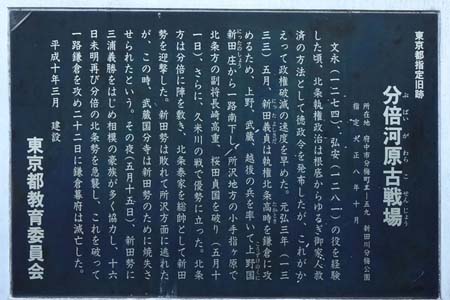 東京都指定旧跡
分倍河原古戦場
ぶばいがわらこせんじょう
所在地 府中市分梅町五-五九 新田川分梅公園
指定 大正八年十月
文永(一二七四)、弘安(一二八一)の役を経験
した頃、北条執権政治は根底からゆるぎ御家人救
済の方法として徳政令を発布したが、これがか
えって政権破滅の速度を早めた。元弘三年(一三
三三)五月、新田義貞は執権北条高時を鎌倉に攻
めるため、上野、武蔵、越後の兵を率いて上野国
新田庄から一路南下し、所沢地方の小手指ヶ原で
北条方の副将長崎高重、桜田貞国を破り(五月十
一日)、さらに、久米川の戦で優勢に立った。北条
方は分倍に陣を敷き、北条泰家を総帥として新田
勢を迎撃した。新田勢は敗れて所沢方面に逃れた
が、この時、武蔵国分寺は新田勢のために焼失さ
せられたという。その夜(五月十五日)、新田勢に
三浦義勝をはじめ相模の豪族が多く協力し、十六
日未明再び分倍の北条勢を急襲し、これを破って
一路鎌倉を攻め二十二日に鎌倉幕府は滅亡した。
平成十年三月 建設
東京都教育委員会